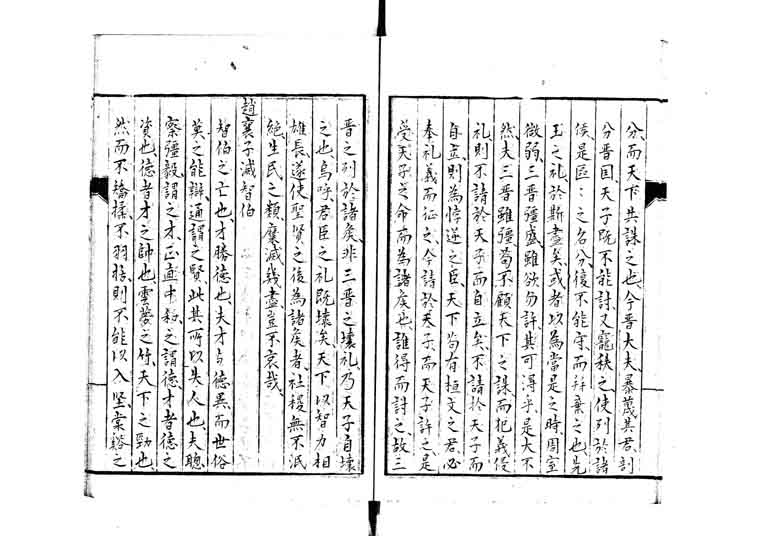 分、而天下共誅之也、今晋大夫暴蔑其君、剖
分晋国、天子既不能討、又寵秩之、使列於諸
侯、是区〻之名分、復不能守、而并棄之也、先
王之礼、於斯尽矣、或者以為當是之時、周室
微弱、三晋彊盛、雖欲勿許、其可得乎、是大不
然、夫三晋雖彊、苟不顧天下之誅、而犯義侵
礼、則不請於天子而自立矣、不請於天子而
自立、則為悖逆之臣、天下苟有桓文之君、必
奉礼義而征之、今請於天子、而天子許之、是
受天子之命而為諸侯也、誰得而討之、故三
晋之列於諸侯、非三晋之壊礼、乃天子自壊
之也、烏呼、君臣之礼既壊矣、天下以智力相
雄長、遂使聖賢之後為諸侯者、社稷無不泯
絶、生民之類、糜滅幾盡、豈不哀哉、
趙襄子滅智伯
智伯之亡也、才勝徳也、夫才与徳異、而世俗
莫之能辯、通謂之賢、此其所以失人也、夫聰
察彊毅謂之才、正直中和之謂徳、才者徳之
資也、徳者才之帥也、雲夢之竹、天下之勁也、
然而不矯揉、不羽括、則不能以入堅、棠谿之